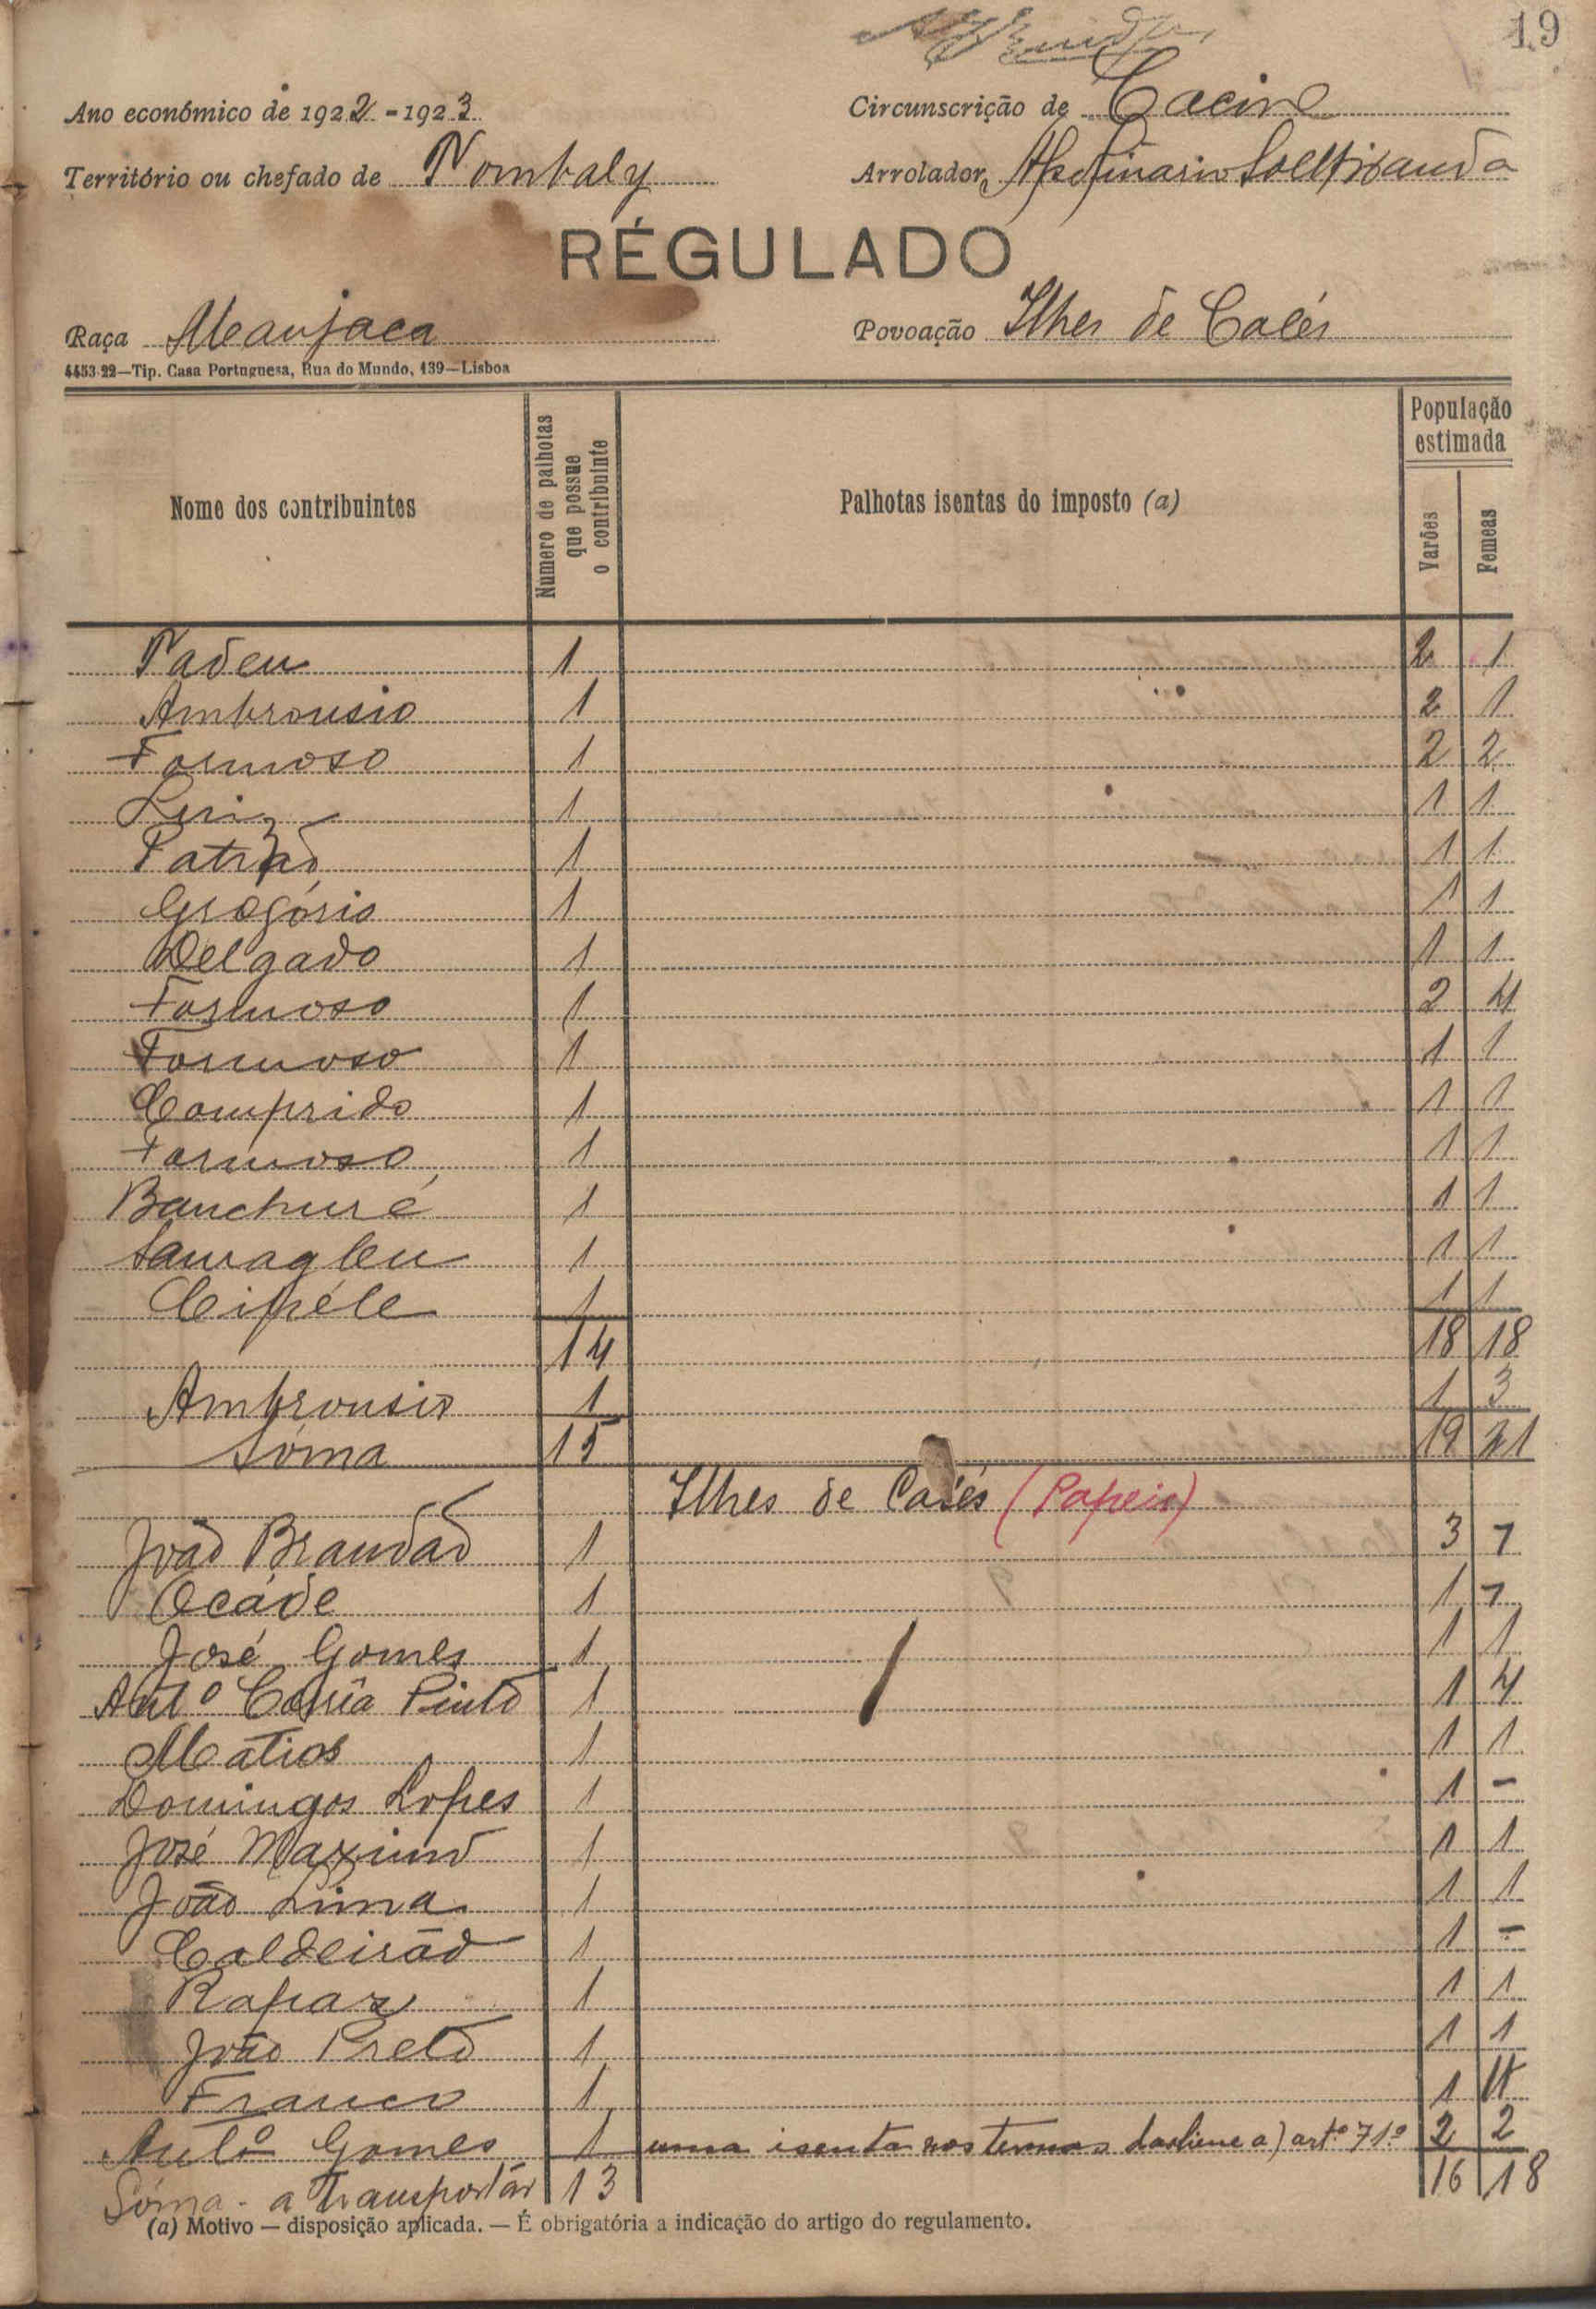 19
Ano económico de 1922-1923
Circunscrição de Cacine
Território ou chefado de Nombaly
Arrolador, Apolinario
RÉGULADO
Raça Manjaca
Povoação Ilhes de Calés
4453-22—Tip. Casa Portuguesa, Rua do Mundo, 139—Lisboa
Nome dos contribuintes
Numero de palhotas que possue o contribuinte
Palhotas isentas do imposto (a)
População estimada
Varões
Femeas
Tadeu 1 2 1
Ambrousio 1 2 1
Formoso 1 2 2
Luiz 1 1 1
Patrão 1 1 1
Gregório 1 1 1
Delgado 1 1 1
Formoso 1 2 4
Formoso 1 1 1
Comprido 1 1 1
Formoso 1 1 1
Banchuré 1 1 1
1 1 1
Cipéle 1 1 1
14 18 18
Ambrousio 1 1 3
Sôma 15 19 21
Ilhes de Calés (Papeis)
João Brandão 1 3 1
Ocáde 1 1 1
José Gomes 1 1 1
Antº Corrêa Pinto 1 1 4
Matios 1 1 1
Domingos Lopes 1 1 -
José Maximo 1 1 1
João Lima 1 1 1
Caldeirão 1 1 -
Rapaz 1 1 1
João Preto 1 1 1
Franco 1 1 4
Antº Gomes 1 uma isenta nos termos da aliene a) artº 71º 2 2
Sôma - a transportar 13 16 18
(a) Motivo — disposição aplicada. — É obrigatória a indicação do artigo do regulamento.